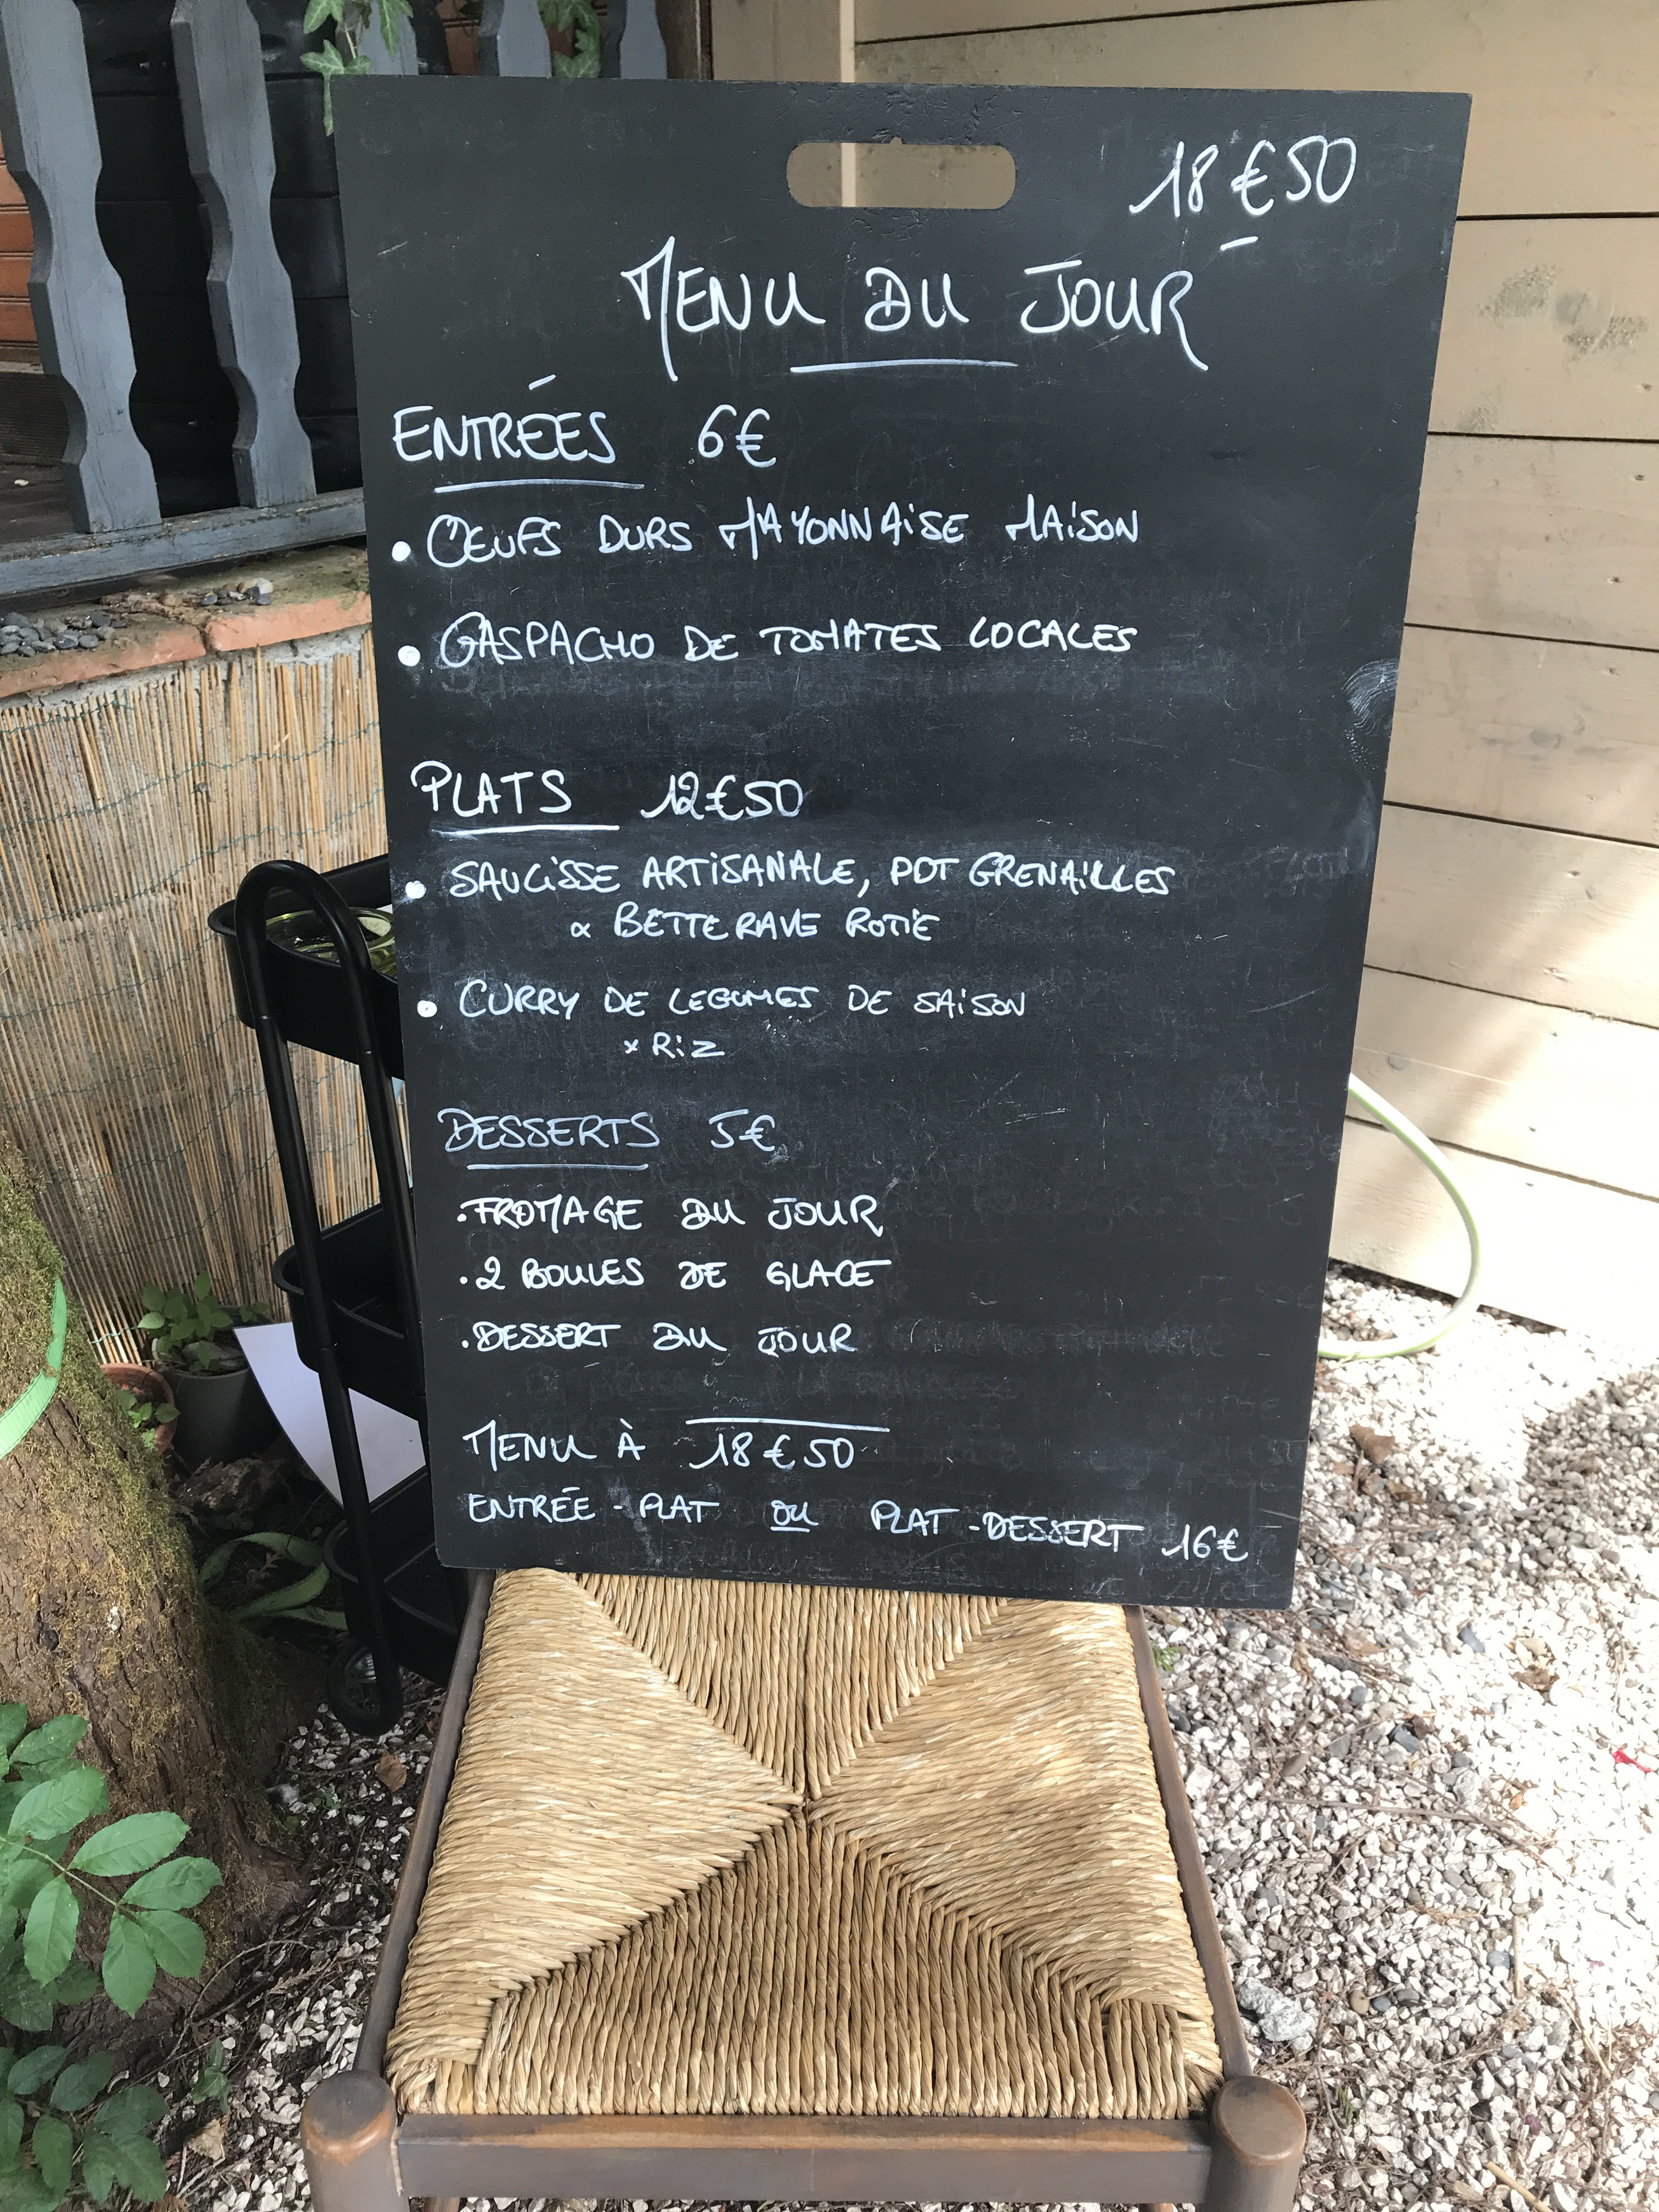 18€50
MENU DU JOUR
ENTRÉES 6€
• OEUFS DURS MAYONNAISE MAISON
• GASPACHO DE TOMATES LOCALES
PLATS 12€50
• SAUCISSE ARTISANALE, PDT GRENAILLES
& BETTERAVE ROTIE
• CURRY DE LEGUMES DE SAISON
x RIZ
DESSERTS 5€
. FROMAGE DU JOUR
. 2 BOULES DE GLACE
. DESSERT DU JOUR
MENU À 18€50
ENTRÉE - PLAT OU PLAT - DESSERT 16€